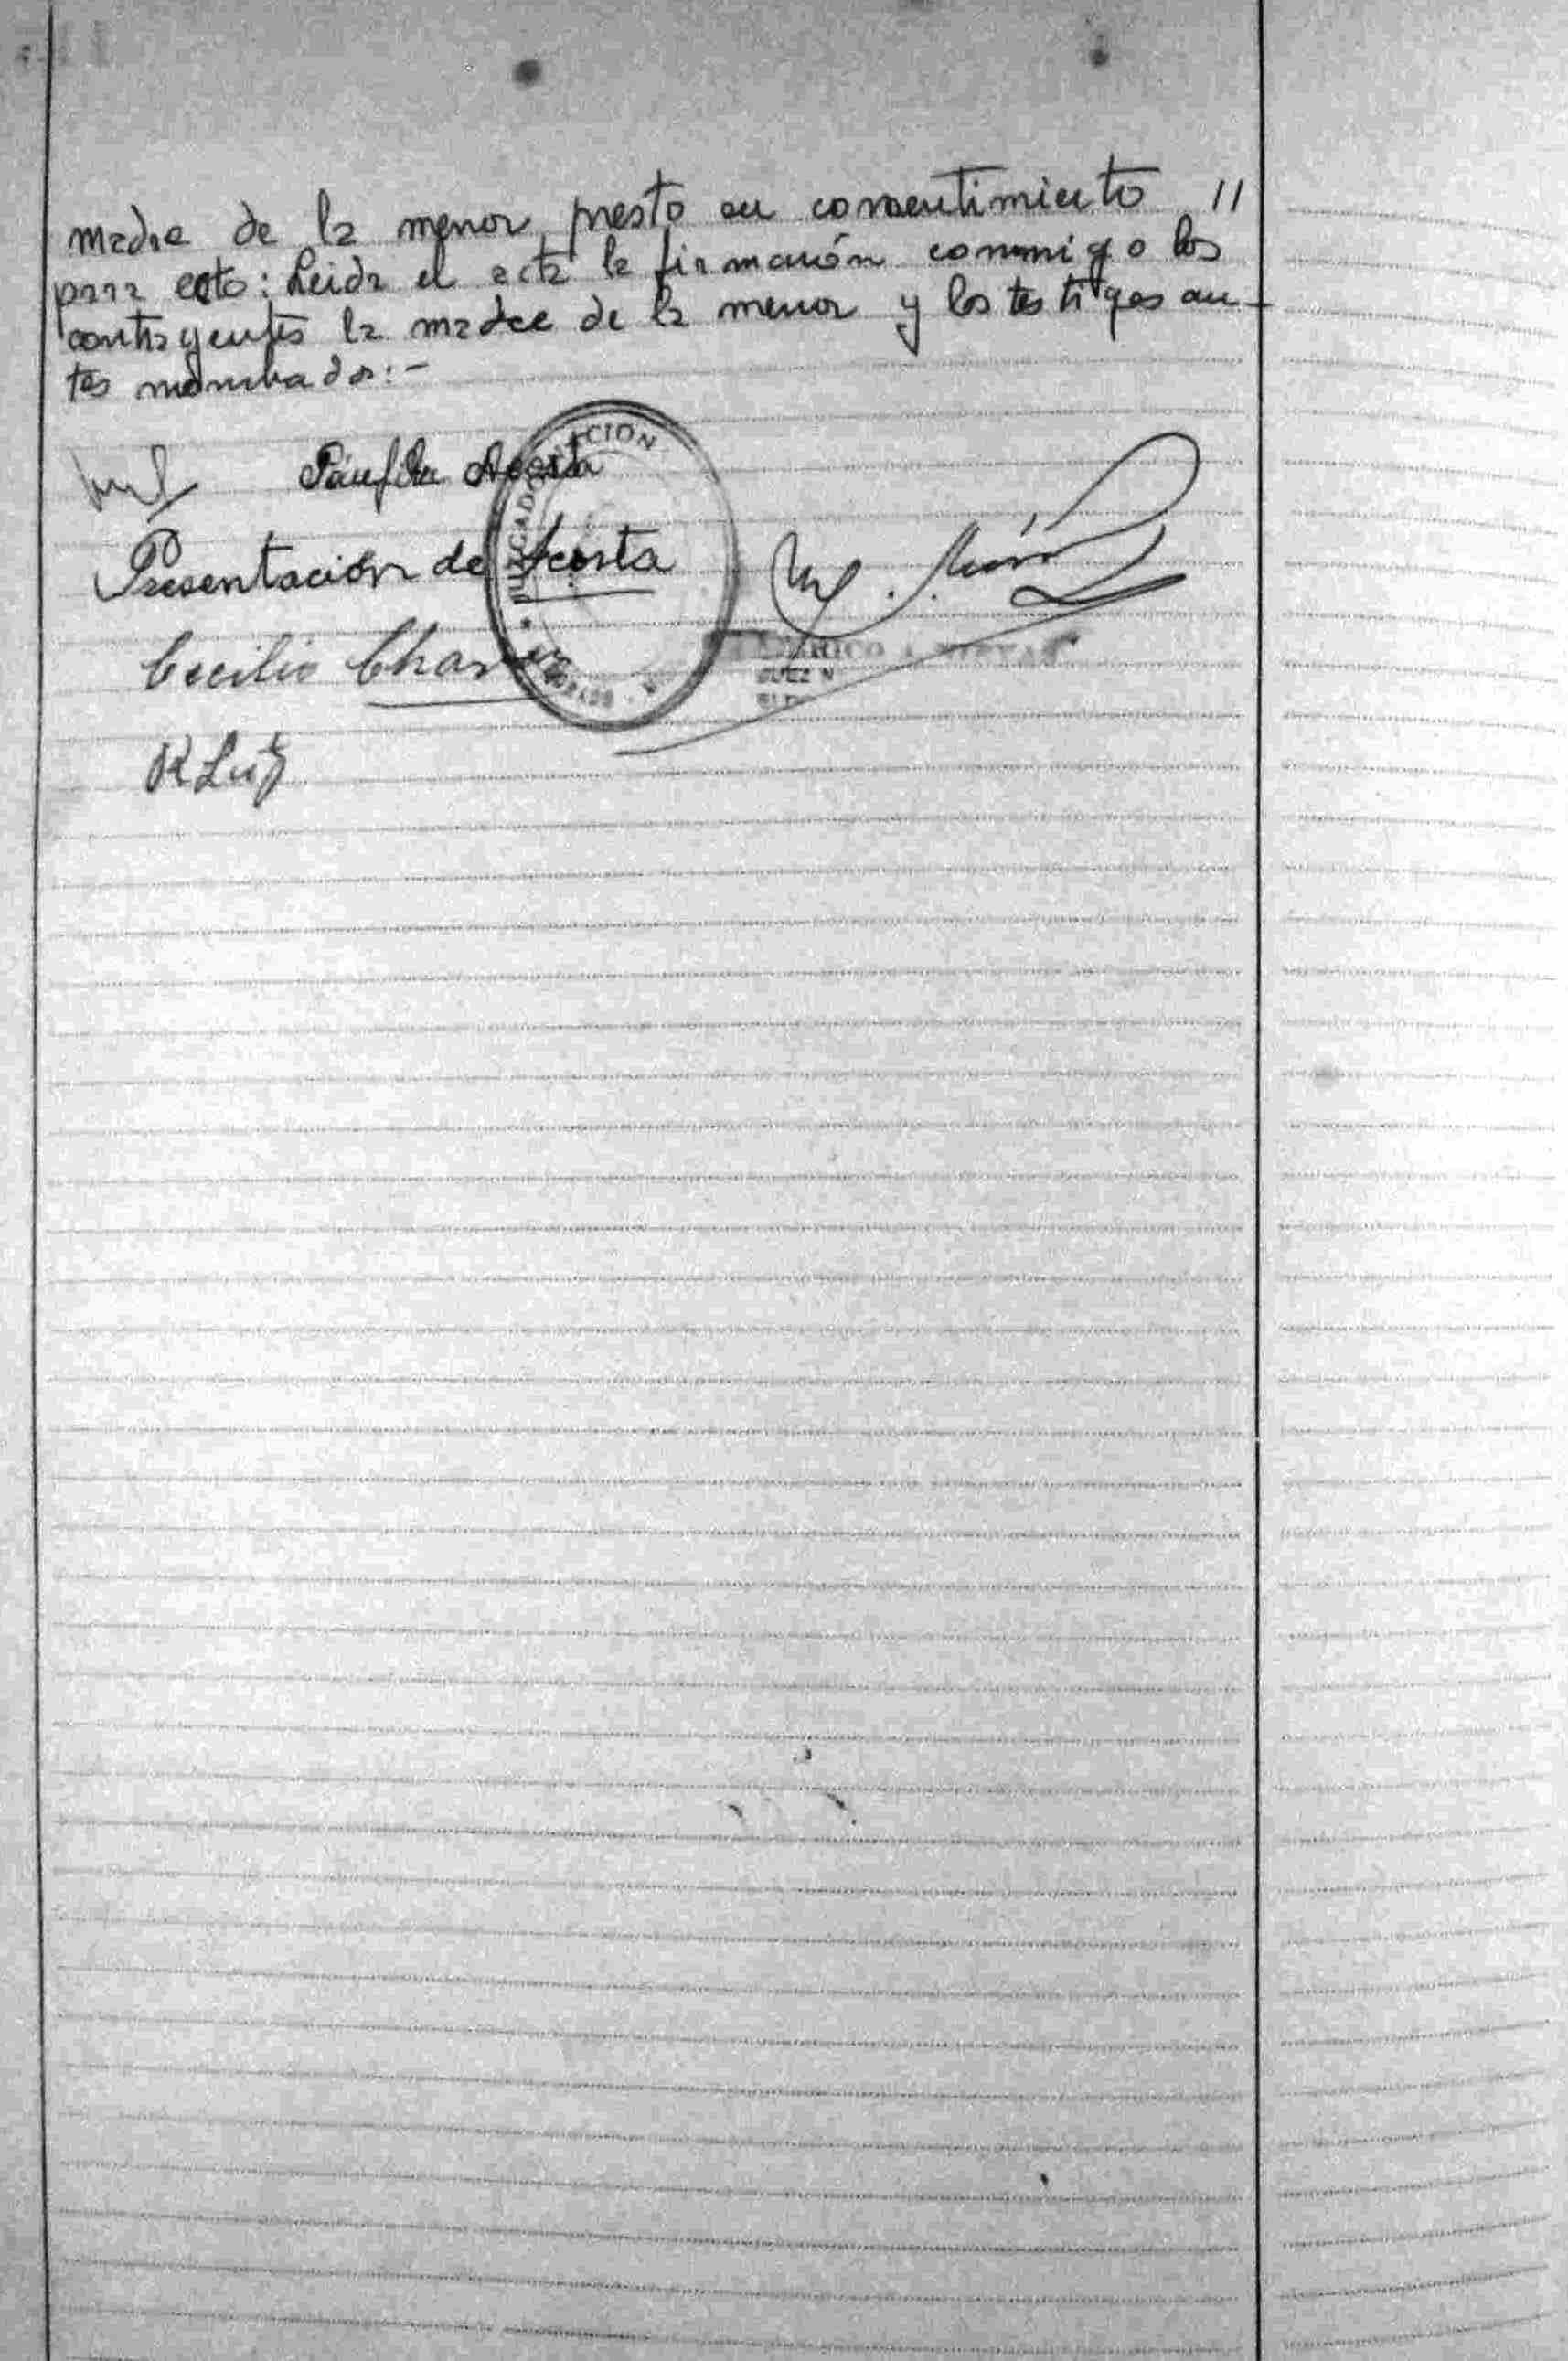 madre de la menor, presto su consentimiento //
para esto: Leida el acta la firmarón conmigo los
contrayentes la madre de la menor y los testigos an-
tes mombrados:-
Acosta
Presentación de Acosta
Cecilio
R Luz
JUZGADO
CION
JUEZ